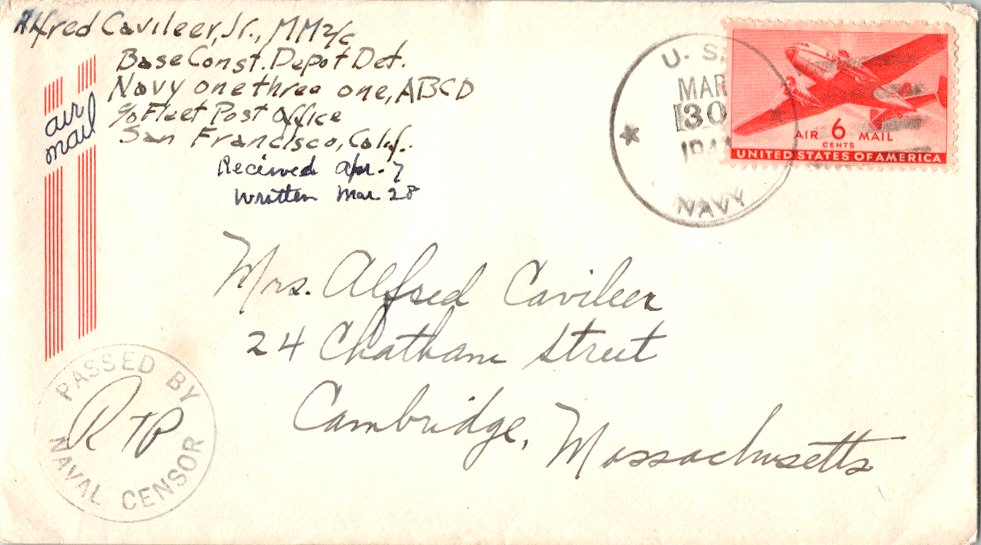 Alfred Cavileer, Jr., MM2/c
Base Const. Depot Det.
Navy one three one, ABCD
c/o Fleet Post Office
San Francisco, Calif.
Recieved Apr. 7
Written Mar. 28
air
mail
U. S.
MAR
30
NAVY
AIR 6 MAIL
CENTS
UNITED STATES OF AMERICA
Mrs. Alfred Cavileer
24 Chatham Street
Cambridge, Massachusetts
PASSED BY
RTP
NAVAL CENSOR